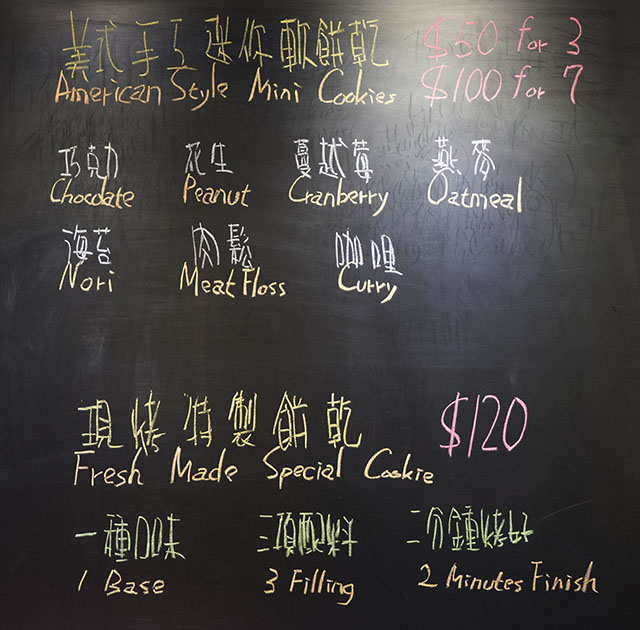 美式手工迷你軟餅乾 $50 for 3
American Style Mini Cookies $100 for 7
巧克力 花生 蔓越莓 燕麥
Chocolate Peanut Cranberry Oatmeal
海苔 肉鬆 咖哩
Nori Meat Floss Curry
現烤特製餅乾 $120
Fresh Made Special Cookie
一種口味 三項配料 二分鐘烤好
1 Base 3 Filling 2 Minutes Finish